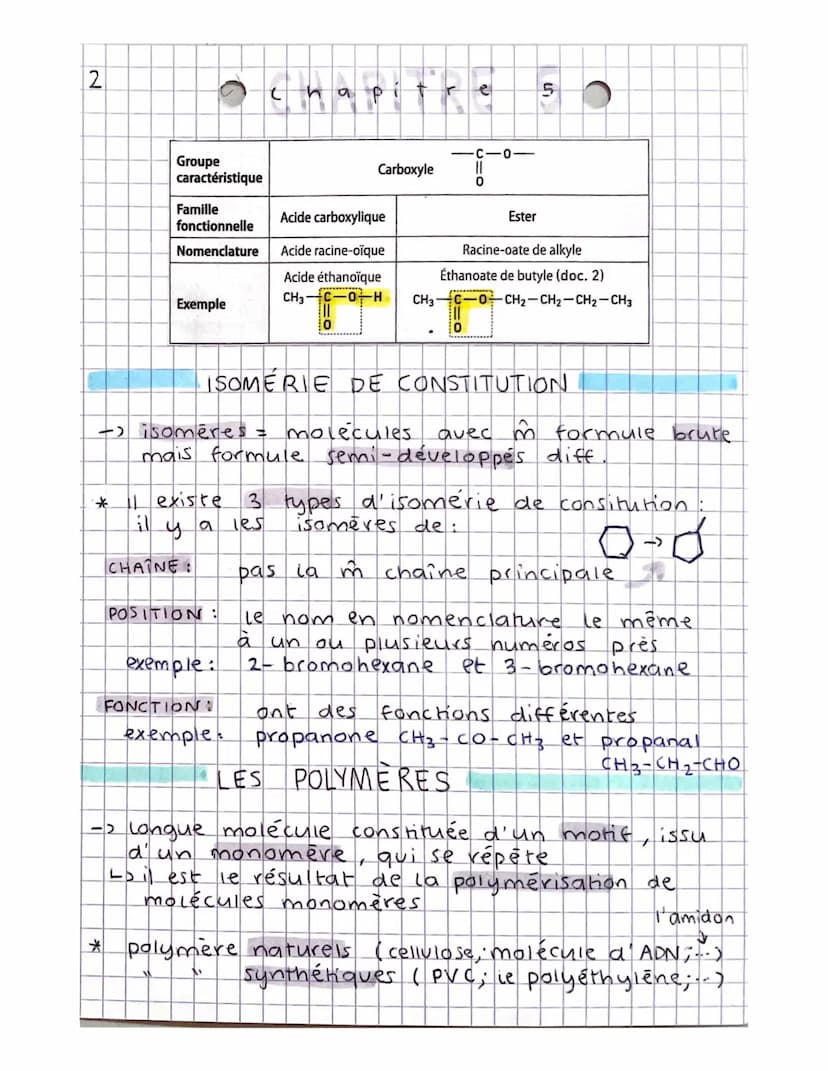 2
Chapitre 5
CHAPITRE
Groupe
caractéristique
Carboxyle
—C—O—
||
O
Famille
fonctionnelle
Acide carboxylique
Ester
Nomenclature
Acide racine-oïque
Racine-oate de alkyle
Exemple
Acide éthanoïque
CH₃—C—O—H
||
O
Éthanoate de butyle (doc. 2)
CH₃—C—O—CH₂—CH₂—CH₂—CH₃
||
O
ISOMÉRIE DE CONSTITUTION
-> isomères = molécules avec m̂ formule brute
mais formule semi-développés diff.
* Il existe 3 types d'isomérie de consitution :
il y a les isomères de :
->
CHAÎNE : pas la m̂ chaîne principale
POSITION : le nom en nomenclature le même
à un ou plusieurs numéros près
exemple : 2-bromohexane et 3-bromohexane
FONCTION : ont des fonctions différentes
exemple : propanone CH₃-CO-CH₃ et propanal
CH₃-CH₂-CHO
LES POLYMÈRES
-> longue molécule constituée d'un motif, issu
d'un monomère, qui se répète
↳ il est le résultat de la polymérisation de
molécules monomères
l'amidon
* polymère naturels (cellulose; molécule d'ADN;...)
" " synthétiques (PVC; le polyéthylène;...)